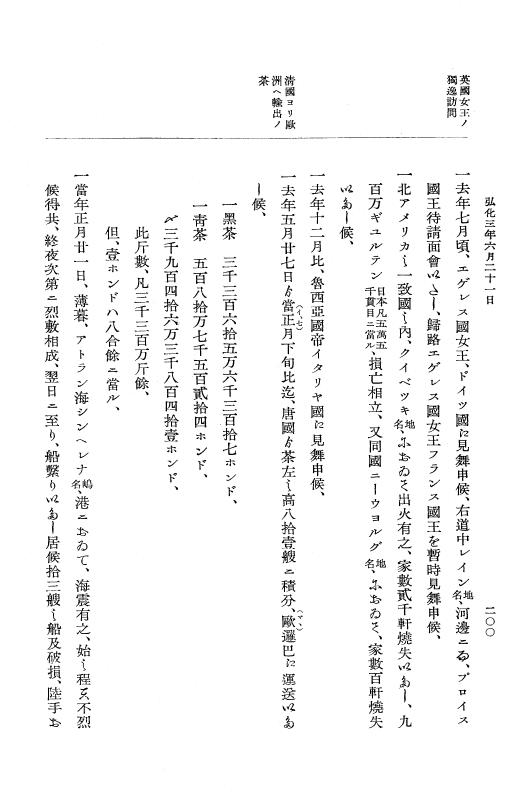 弘化三年六月二十一日
二〇〇
英國女王ノ
獨逸訪問
一去年七月頃、エゲレス國女王、ドイツ國に見舞申候、右道中レイン地名、河邊ニる、プロイス
國王待請面會いたし、歸路エゲレス國女王フランス國王を暫時見舞申候、
一北アメリカ之一致國之内、クイベツキ地名、におゐて出火有之、家數貳千軒燒失いたし、九
百万ギユルテン日本凡五萬五千貫目ニ當ル、損亡相立、又同國ニーウヨルグ地名、におゐて、家數百軒燒失
いたし候、
一去年十二月比、魯西亞國帝イタリヤ國に見舞申候、
清國ヨリ歐
洲ヘ輸出ノ
茶
一去年五月廿七日ゟ當正月下旬比迄、唐國ゟ茶左之高八拾壹艘ニ積分、歐邏巴に運送いた
し候、
一黑茶　三千三百六拾五万六千三百拾七ホンド、
一靑茶　五百八拾万七千五百貳拾四ホンド、
〆三千九百四拾六万三千八百四拾壹ホンド、
此斤數、凡三千三百万斤餘、
但、壹ホンドハ八合餘ニ當ル、
一當年正月廿一日、薄暮、アトラン海シンヘレナ嶋名、港ニおゐて、海震有之、始之程ハ不烈
候得共、終夜次第ニ烈敷相成、翌日ニ至り、船繫りいたし居候拾三艘之船及破損、陸手お